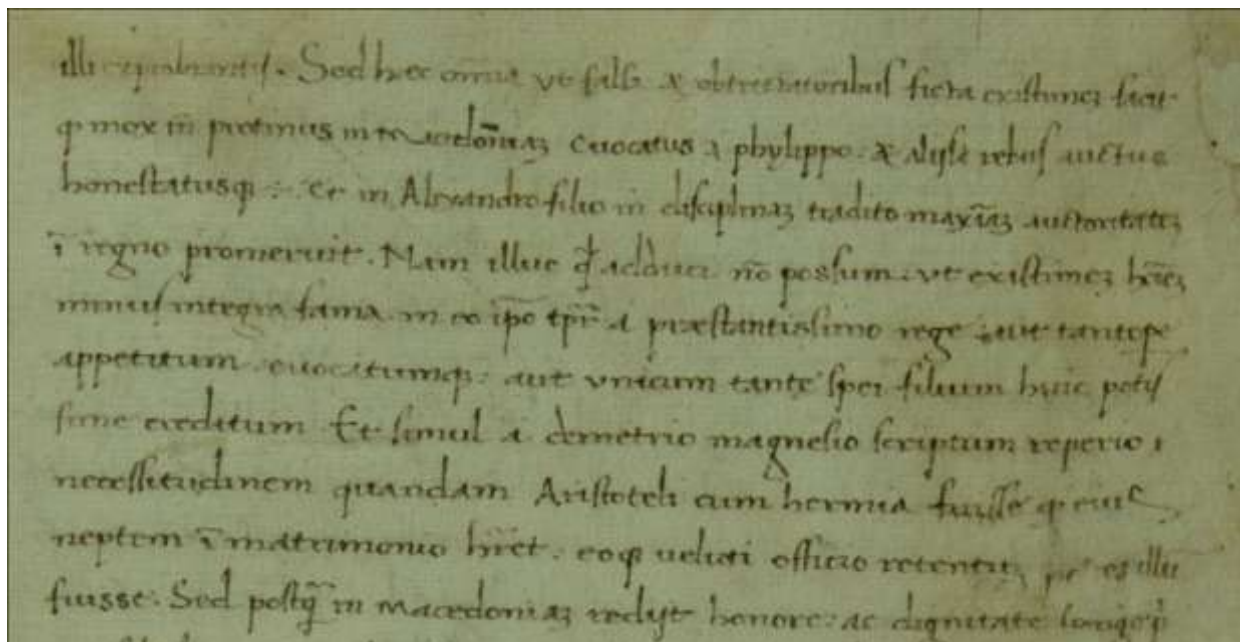 illi exprobrantis. Sed hec om̄ia ut falsa & obtrectatoribus ficta existimē facit
ꝙ mox in protinus in Macedōiaȝ evocatus a phylippo. & alijsꝫ rebus auctus
honestatusqꝫ: Et in Alexandro filio in disciplinaȝ tradito maxīaȝ auctoritatē
ī regno promeruit. Nam illuc adduci nō possum. ut existimeȝ hōīeȝ
minus integra fama in eo ip̄o tp̄r̄ a præstantissimo rege aut tantope
appetitum evocatumqꝫ: aut unicum tante spei filium huic potis
sime creditum Et simul a demetrio magnesio scriptum reperio
necessitudinem quandam Aristoteli cum hermia fuisse ꝙ eius
neptem ī matrimonio hr̄et. eoqꝫ veluti officio retentuȝ illu
fuisse. Sed postq̄ in Macedoniaȝ redijt honore: ac dignitate